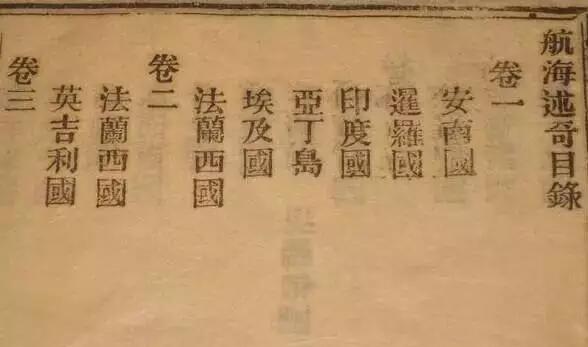 航海述奇目錄
卷一
安南國
暹羅國
印度國
亞丁島
埃及國
法蘭西國
卷二
法蘭西國
英吉利國
卷三